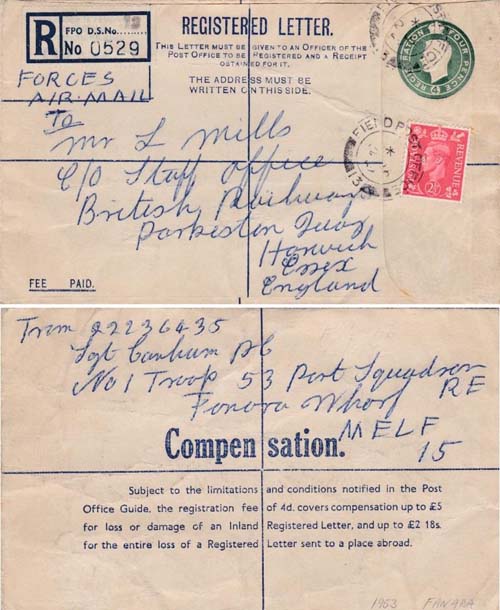 R
FPO D.S.No........
No 0529
REGISTERED LETTER.
THIS LETTER MUST BE GIVEN TO AN OFFICER OF THE
POST OFFICE TO BE REGISTERED AND A RECEIPT
OBTAINED FOR IT.
THE ADDRESS MUST BE
WRITTEN ON THIS SIDE.
REGISTRATION 4 FOUR PENCE 4
FORCES
AIR-MAIL
To
Mr L Mills
C/O Staff office
British Railways
Parkeston Quay
Harwich
Essex
England
FIELD POST
POSTAGE REVENUE
2½
FEE PAID.
From 22236435
Sgt Canham
No 1 Troop 53 Port Squadron
RE
Fanara Wharf
MELF
15
Compensation.
Subject to the limitations and conditions notified in the Post
Office Guide, the registration fee of 4d. covers compensation up to £5
for loss or damage of an Inland Registered Letter, and up to £2 18s.
for the entire loss of a Registered Letter sent to a place abroad.
1953 FANARA